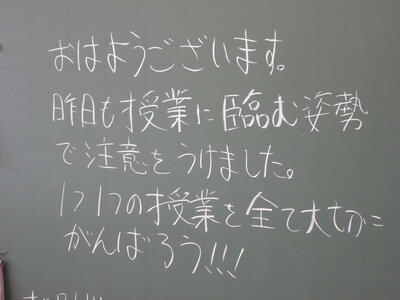 おはようございます。
昨日も授業に臨む姿勢
で注意をうけました。
1つ1つの授業を全て大切に
がんばろう!!!